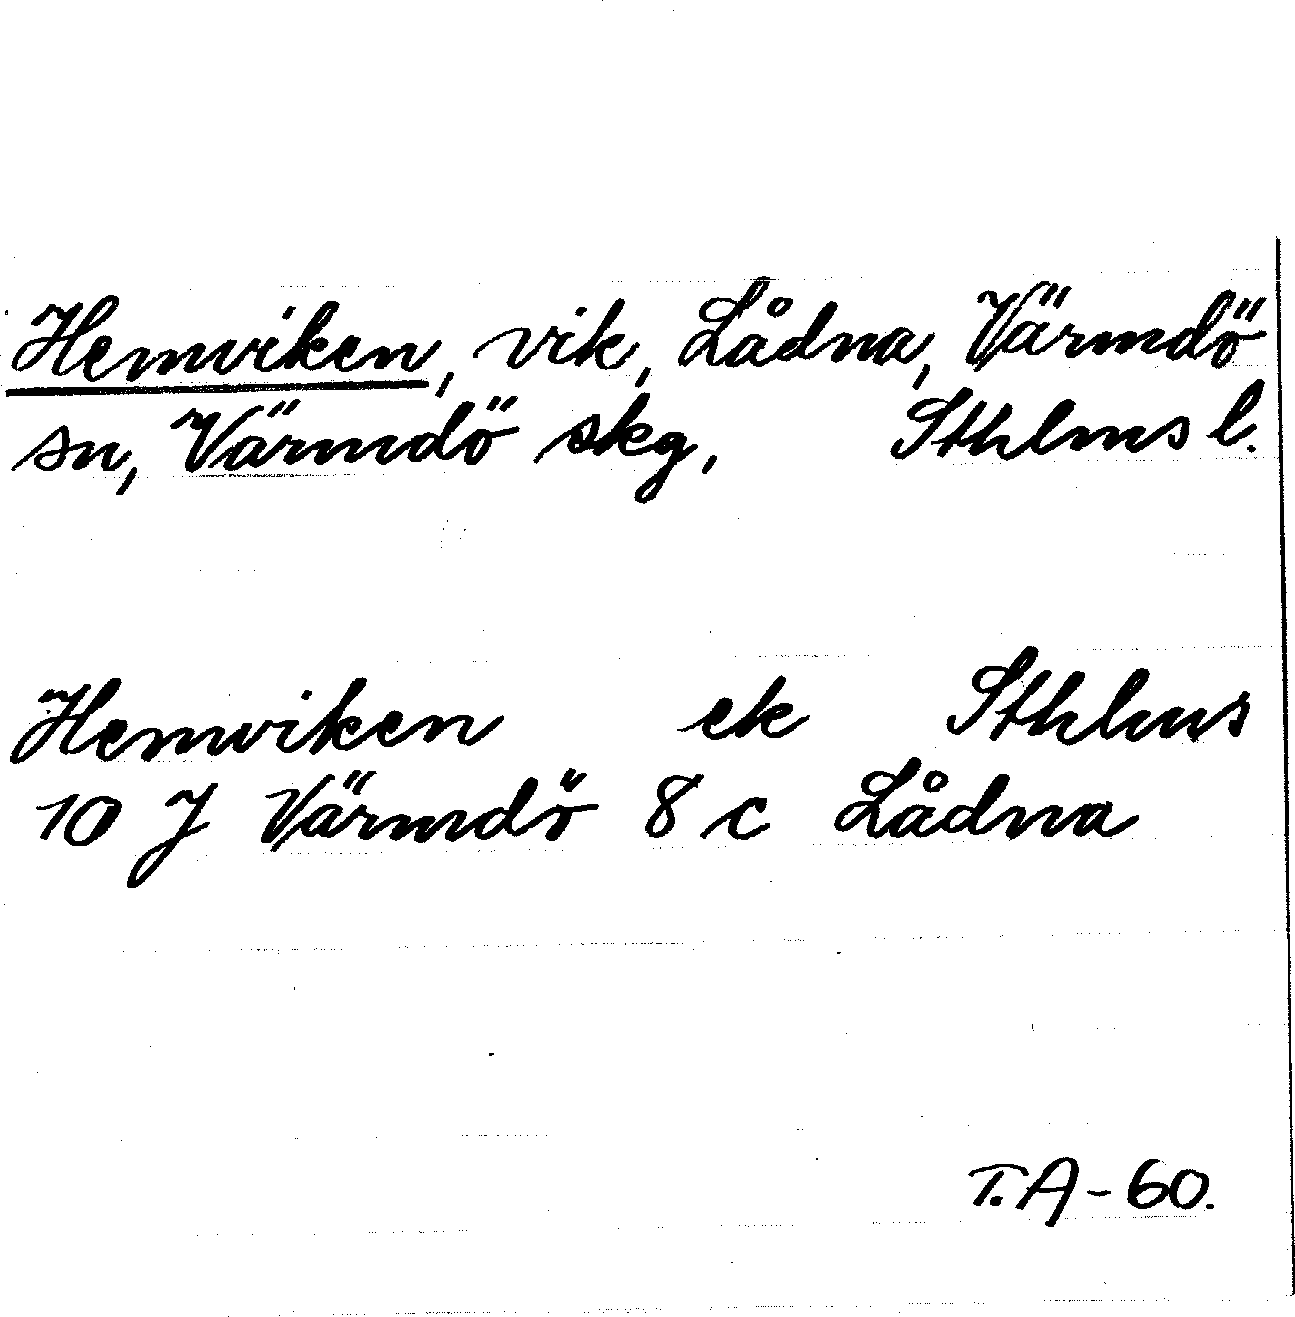 Hemviken, vik, Lådna, Värmdö
sn, Värmdö skg, Sthlms l.
Hemviken ek Sthlms
10 J Värmdö 8 c Lådna
T.A-60.